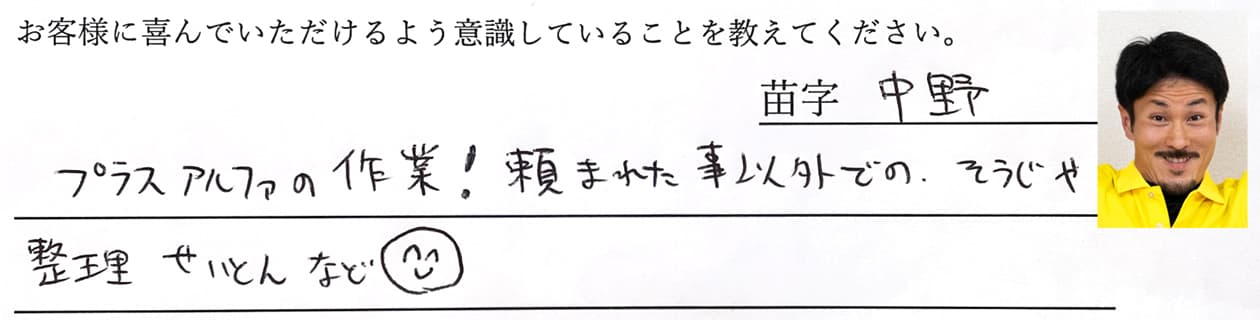 お客様に喜んでいただけるよう意識していることを教えてください。
苗字 中野
プラスアルファの作業！頼まれた事以外での、そうじや
整理 せいとん など